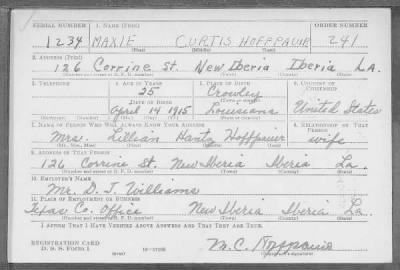 SERIAL NUMBER 1. NAME (Print) ORDER NUMBER
1234 MAXIE CURTIS HOFFPAUIR 241
(First) (Middle) (Last)
2. ADDRESS (Print)
126 Corrine St. New Iberia Iberia LA.
(Number and street or R. F. D. number) (Town) (County) (State)
3. TELEPHONE 4. AGE IN YEARS 5. PLACE OF BIRTH 6. COUNTRY OF CITIZENSHIP
25 Crowley
DATE OF BIRTH (Town or county)
April 14 1915 Louisiana United States
(Mo.) (Day) (Yr.) (State or country)
7. NAME OF PERSON WHO WILL ALWAYS KNOW YOUR ADDRESS 8. RELATIONSHIP OF THAT PERSON
Mrs. Lillian Hoffpauir wife
(Mr., Mrs., Miss) (First) (Middle) (Last)
9. ADDRESS OF THAT PERSON
126 Corrine St. New Iberia Iberia La
(Number and street or R. F. D. number) (Town) (County) (State)
10. EMPLOYER'S NAME
Mr. D. T. Williams
11. PLACE OF EMPLOYMENT OR BUSINESS
Texas Co. Office New Iberia Iberia La.
(Number and street or R. F. D. number) (Town) (County) (State)
I AFFIRM THAT I HAVE VERIFIED ABOVE ANSWERS AND THAT THEY ARE TRUE.
REGISTRATION CARD
D. S. S. FORM 1 (over) M. C. Hoffpauir